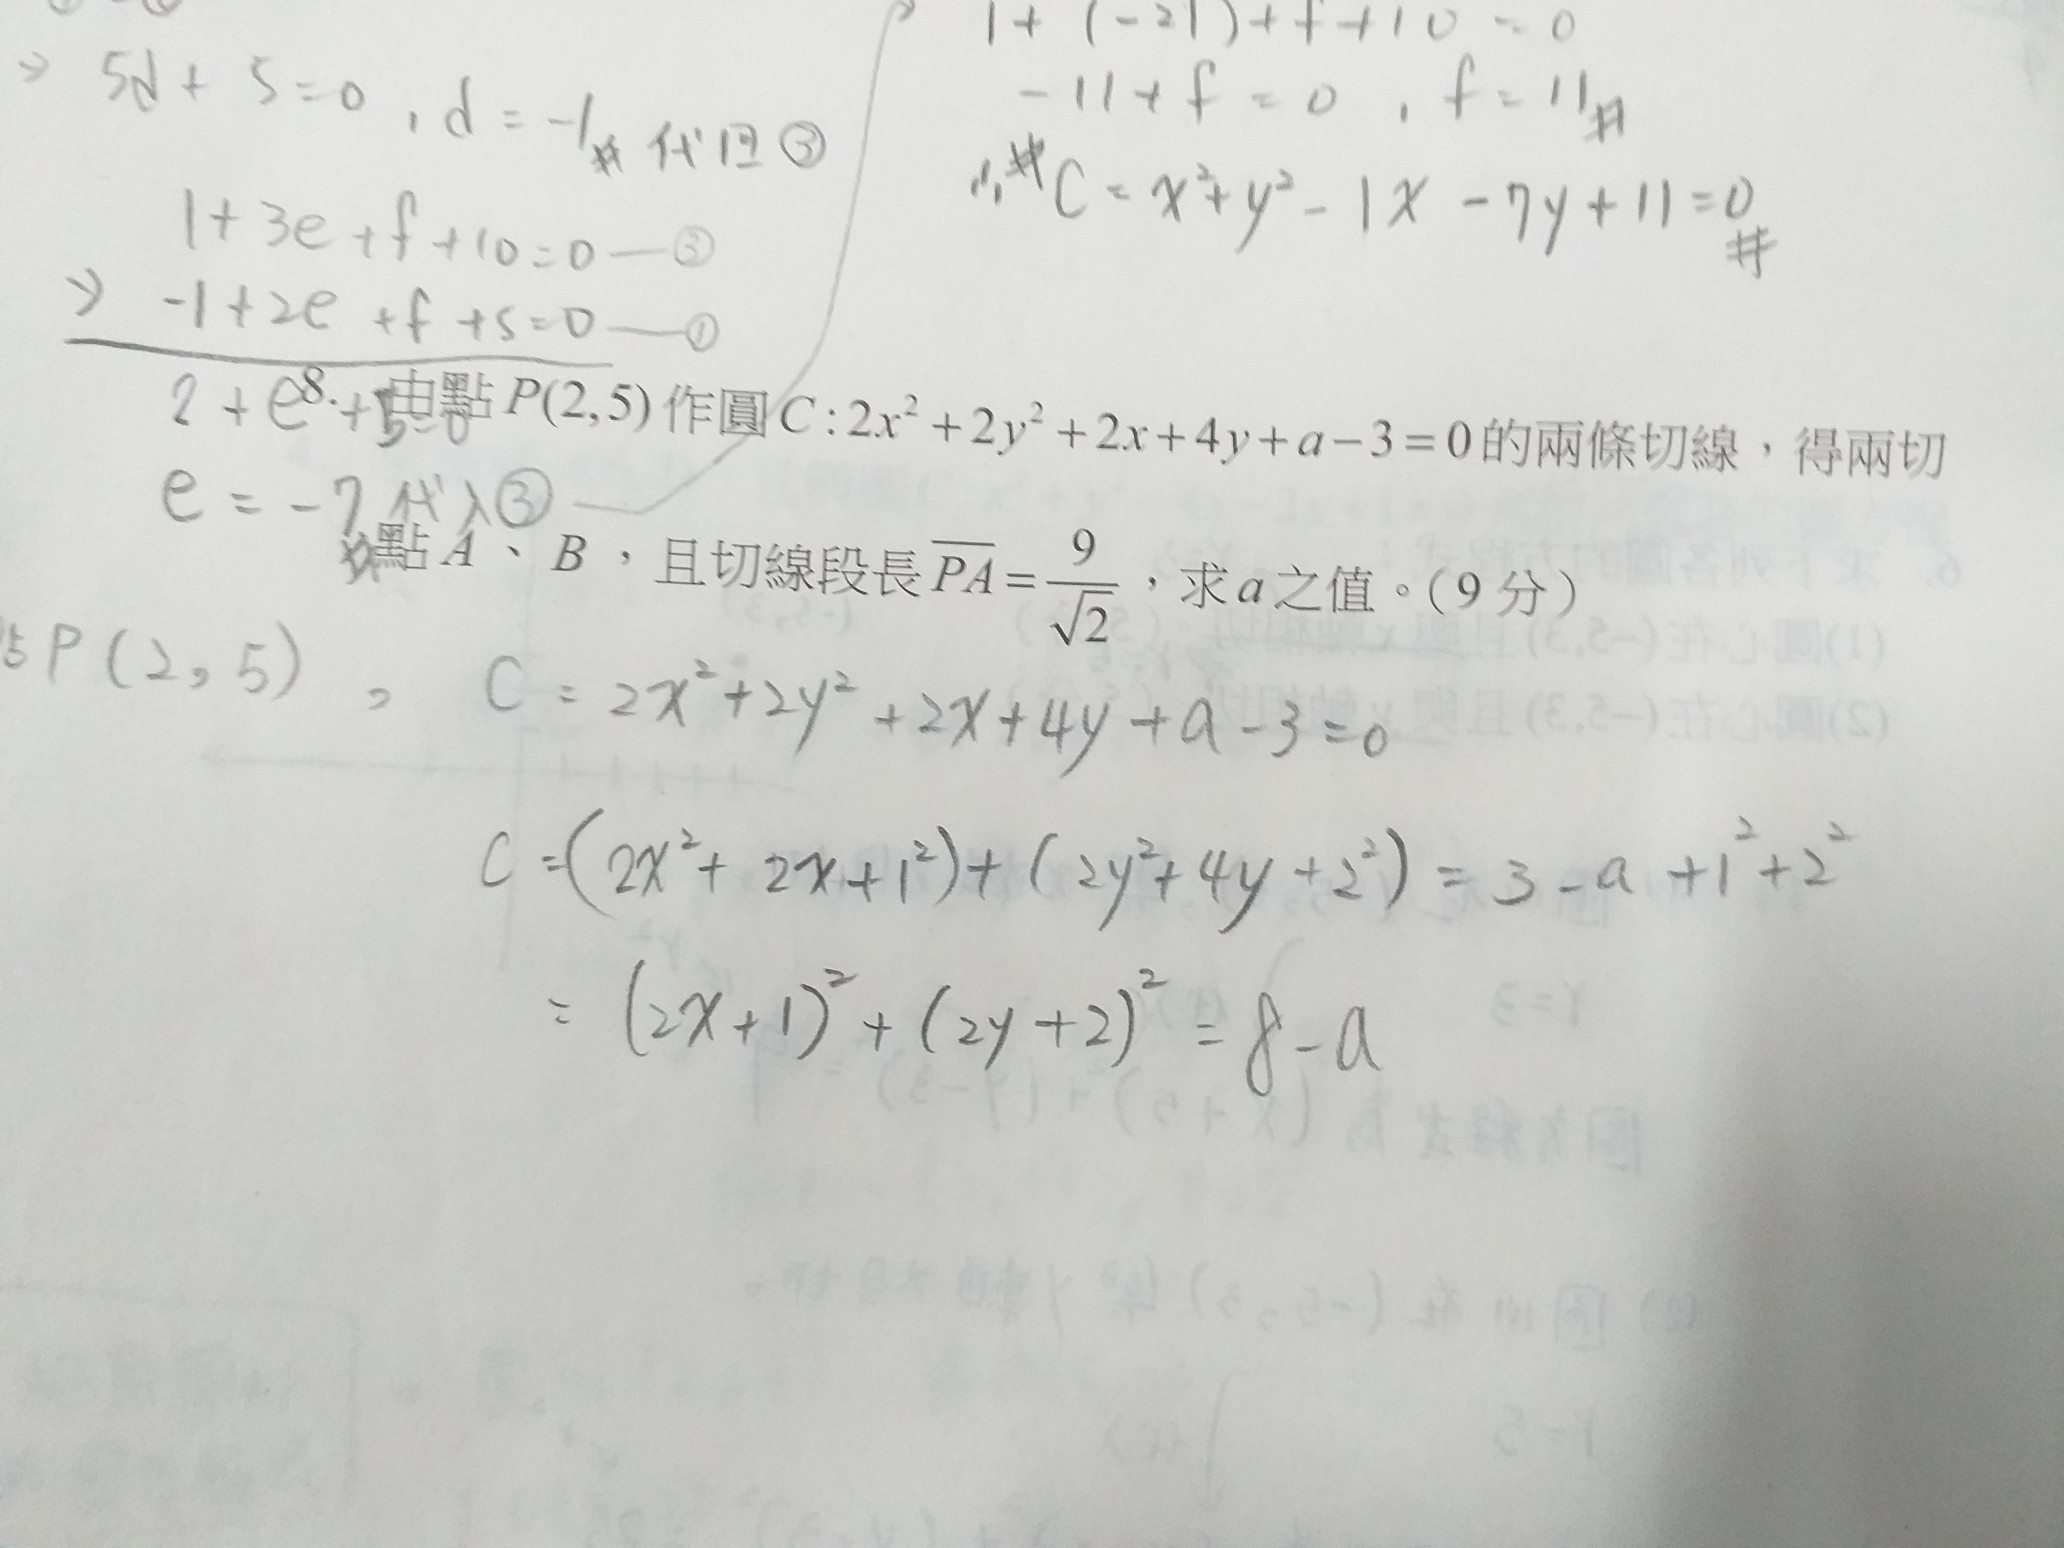 ⇒ 5d + 5 = 0 , d = -1# 代回③
1 + 3e + f + 10 = 0 — ③
⇒ -1 + 2e + f + 5 = 0 — ①
2 + e + 5 = 0
e = -7# 代入③
1 + (-21) + f + 10 = 0
-11 + f = 0 , f = 11#
∴ # C = x² + y² - 1x - 7y + 11 = 0#
8. 由點 P(2,5) 作圓 C : 2x² + 2y² + 2x + 4y + a − 3 = 0 的兩條切線，得兩切
點 A、B，且切線段長 \overline{PA} = \frac{9}{\sqrt{2}}，求 a 之值。(9 分)
P (2, 5) , C = 2x² + 2y² + 2x + 4y + a - 3 = 0
C = (2x² + 2x + 1²) + (2y² + 4y + 2²) = 3 - a + 1² + 2²
= (2x + 1)² + (2y + 2)² = 8 - a